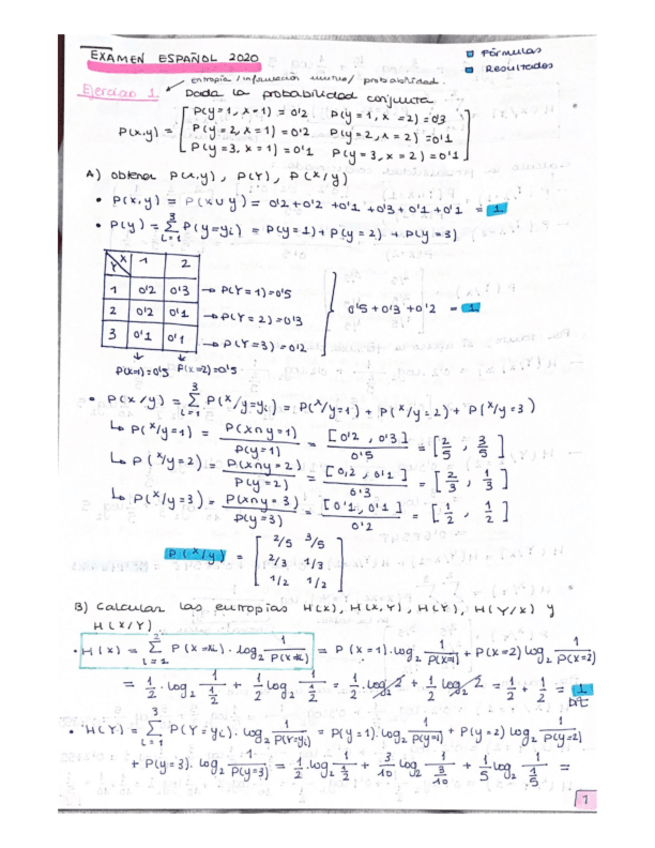 EXAMEN ESPAÑOL 2020
Fórmulas
Resultados
entropía / información mutua / probabilidad.
Ejercicio 1. Dada la probabilidad conjunta
P(x,y) = [ P(y=1, x=1) = 0'2 P(y=1, x=2) = 0'3
P(y=2, x=1) = 0'2 P(y=2, x=2) = 0'1
P(y=3, x=1) = 0'1 P(y=3, x=2) = 0'1 ]
A) obtener P(x,y), P(Y), P(X/y)
• P(x,y) = P(x∪y) = 0'2 + 0'2 + 0'1 + 0'3 + 0'1 + 0'1 = 1
• P(y) = 3 Σ i=1 P(y=yi) = P(y=1) + P(y=2) + P(y=3)
Y X 1 2
1 0'2 0'3 → P(Y=1) = 0'5
2 0'2 0'1 → P(Y=2) = 0'3
3 0'1 0'1 → P(Y=3) = 0'2
} 0'5 + 0'3 + 0'2 = 1
P(x=1) = 0'5 P(x=2) = 0'5
• P(x/y) = 3 Σ i=1 P(x/y=yi) = P(x/y=1) + P(x/y=2) + P(x/y=3)
↳ P(x/y=1) = P(x∩y=1) / P(y=1) = [0'2, 0'3] / 0'5 = [2/5, 3/5]
↳ P(x/y=2) = P(x∩y=2) / P(y=2) = [0,2, 0'1] / 0'3 = [2/3, 1/3]
↳ P(x/y=3) = P(x∩y=3) / P(y=3) = [0'1, 0'1] / 0'2 = [1/2, 1/2]
P(x/y) = [ 2/5 3/5
2/3 1/3
1/2 1/2 ]
B) Calcular las entropías H(X), H(X,Y), H(Y), H(Y/X) y
H(X/Y)
• H(X) = 2 Σ i=1 P(X=xi) · log2 1/P(X=xi) = P(X=1) · log2 1/P(X=1) + P(X=2) log2 1/P(X=2)
= 1/2 · log2 1/(1/2) + 1/2 log2 1/(1/2) = 1/2 · log2 2 + 1/2 log2 2 = 1/2 + 1/2 = 1 bit
• H(Y) = 3 Σ i=1 P(Y=yi) · log2 1/P(Y=yi) = P(y=1) · log2 1/P(y=1) + P(y=2) log2 1/P(y=2)
+ P(y=3) · log2 1/P(y=3) = 1/2 · log2 1/(1/2) + 3/10 log2 1/(3/10) + 1/5 log2 1/(1/5) =
1